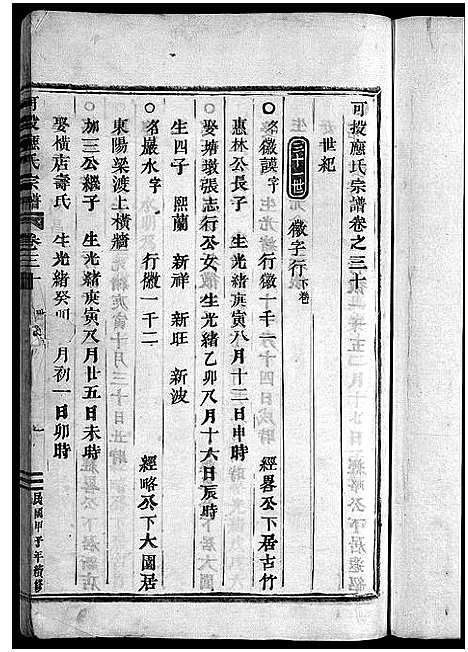 可投應氏宗譜卷之三十
世紀
三十一世 徽字行下卷
名徽謨字 行徽一千六十四 經畧公下居古竹
惠林公長子 生光緒庚寅八月十三日申時
娶塘墩張志行公女 生光緒乙卯八月十六日辰時
生四子 熙蘭 新祥 新旺 新波
名嚴水字 行徽一千二 經略公下大園居
東陽梁渡上橫牆
加三公繼子 生光緒庚寅八月廿五日未時
娶橫店壽氏 生光緒癸巳 月初一日卯時
可投應氏宗譜 卷三十
民國甲子年續修